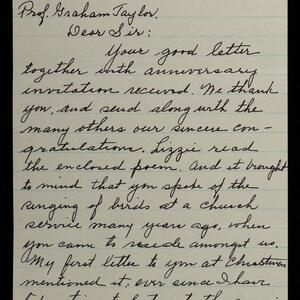 Prof. Graham Taylor.
Dear Sir:
Your good letter
together with anniversary
invitation received. We thank
you, and send along with the
many others our sincere con-
gratulations. Lizzie read
the enclosed poem. And it brought
to mind that you spoke of the
singing of birds at a church
service many years ago, when
you came to reside amongst us.
My first letter to you at Christmas
mentioned it, ever since I have